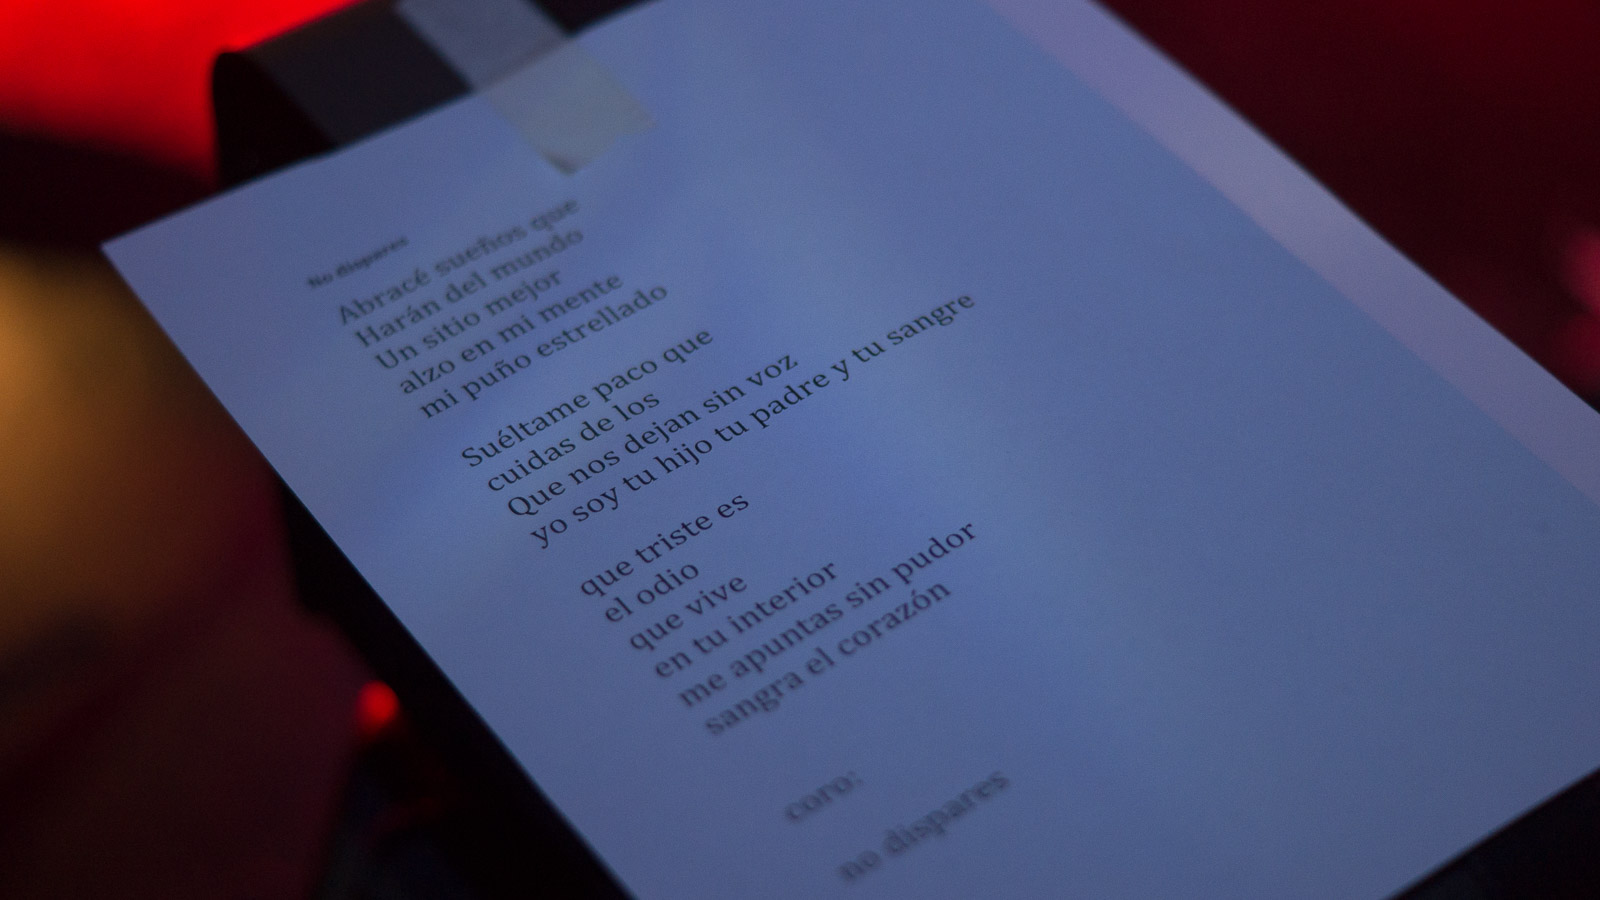 No dispares
Abracé sueños que
Harán del mundo
Un sitio mejor
alzo en mi mente
mi puño estrellado
Suéltame paco que
cuidas de los
Que nos dejan sin voz
yo soy tu hijo tu padre y tu sangre
que triste es
el odio
que vive
en tu interior
me apuntas sin pudor
sangra el corazón
coro:
no dispares